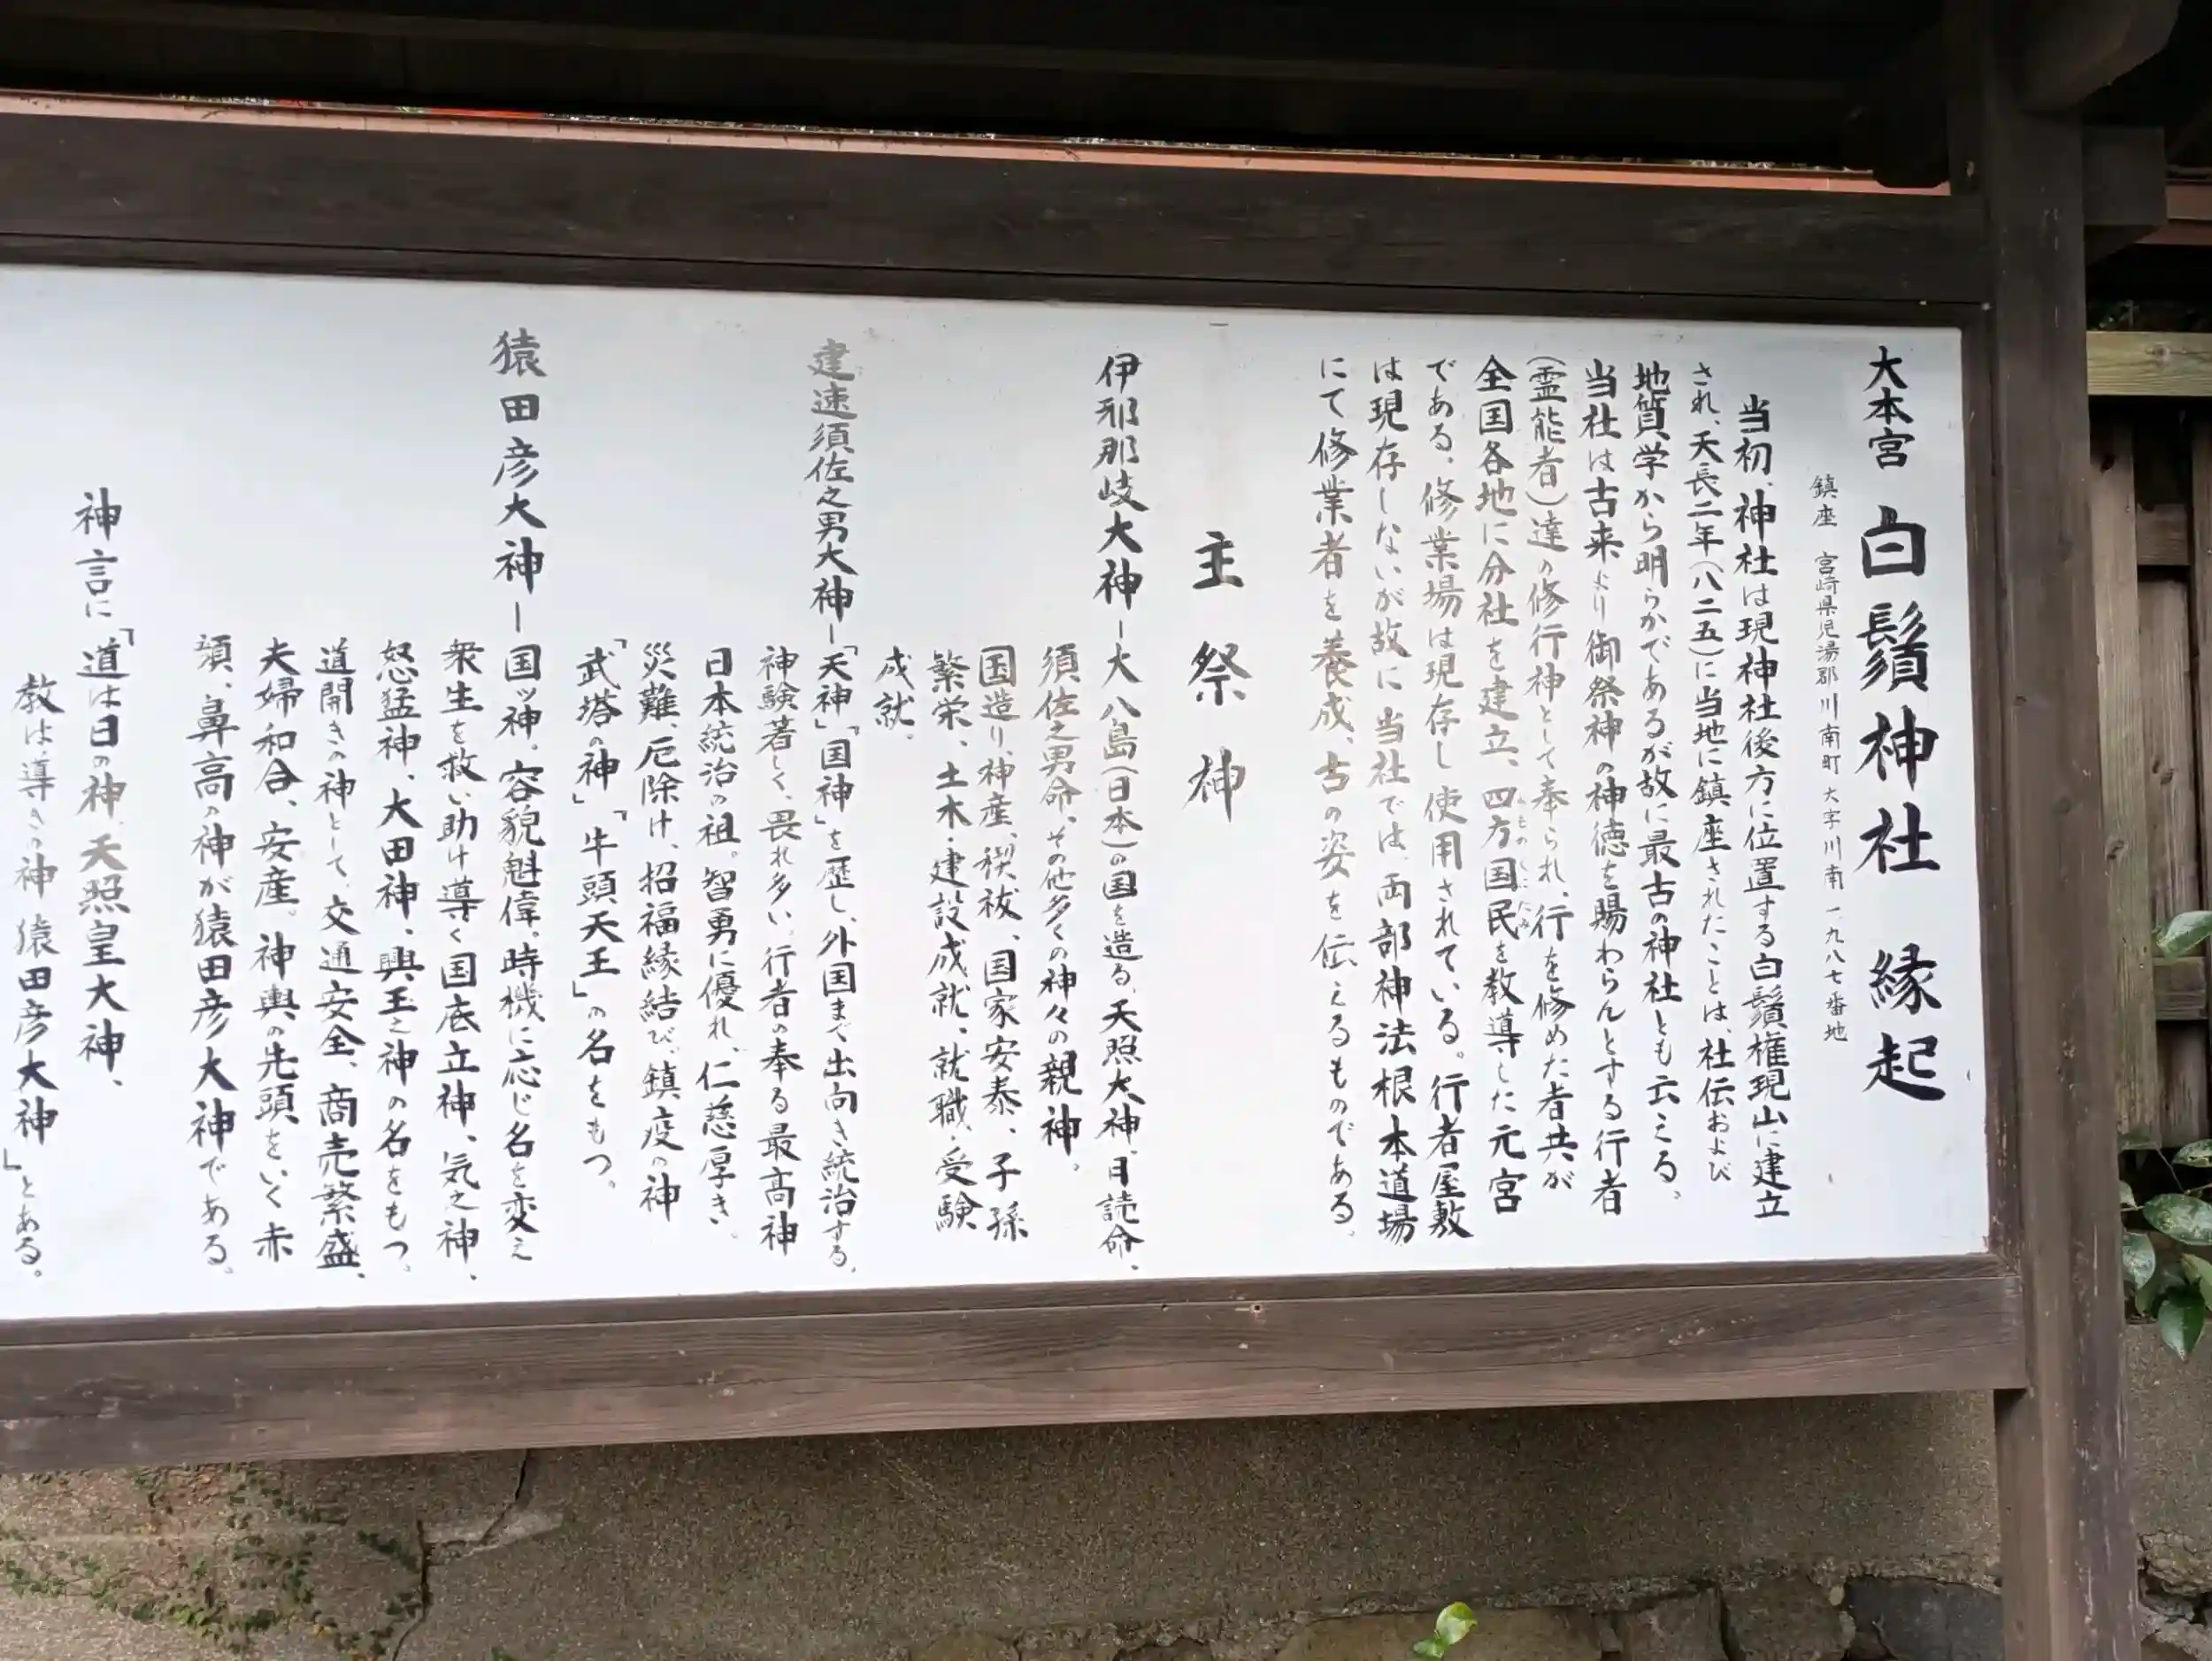 大本宮 白鬚神社 縁起
鎮座 宮崎県児湯郡川南町大字川南一、九八七番地
当初、神社は現神社後方に位置する白鬚権現山に建立
され、天長二年(八二五)に当地に鎮座されたことは、社伝および
地質学から明らかであるが故に最古の神社とも云える。
当社は古来より御祭神の神徳を賜わらんとする行者
(霊能者)達の修行神として奉られ、行を修めた者共が
全国各地に分社を建立、四方国民を教導した元宮
である。修業場は現存し使用されている。行者屋敷
は現存しないが故に当社では、両部神法根本道場
にて修業者を養成、古の姿を伝えるものである。
主祭神
伊邪那岐大神―大八島(日本)の国を造る。天照大神、月読命、
須佐之男命、その他多くの神々の親神。
国造り、神産、禊祓、国家安泰、子孫
繁栄、土木・建設成就、就職、受験
成就。
建速須佐之男大神―「天神」「国神」を歴し、外国まで出向き統治する。
神験著しく、畏れ多い。行者の奉る最高神
日本統治の祖。智勇に優れ、仁慈厚き。
災難、厄除け、招福縁結び、鎮疫の神
「武塔の神」「牛頭天王」の名をもつ。
猿田彦大神―国ッ神。容貌魁偉。時機に応じ名を変え
衆生を救い助け導く国底立神、気之神、
怒猛神、大田神、興玉之神の名をもつ。
道開きの神として、交通安全、商売繁盛、
夫婦和合、安産。神輿の先頭をいく赤
頭、鼻高の神が猿田彦大神である。
神言に「道は日の神、天照皇大神、
教は導きの神猿田彦大神」とある。